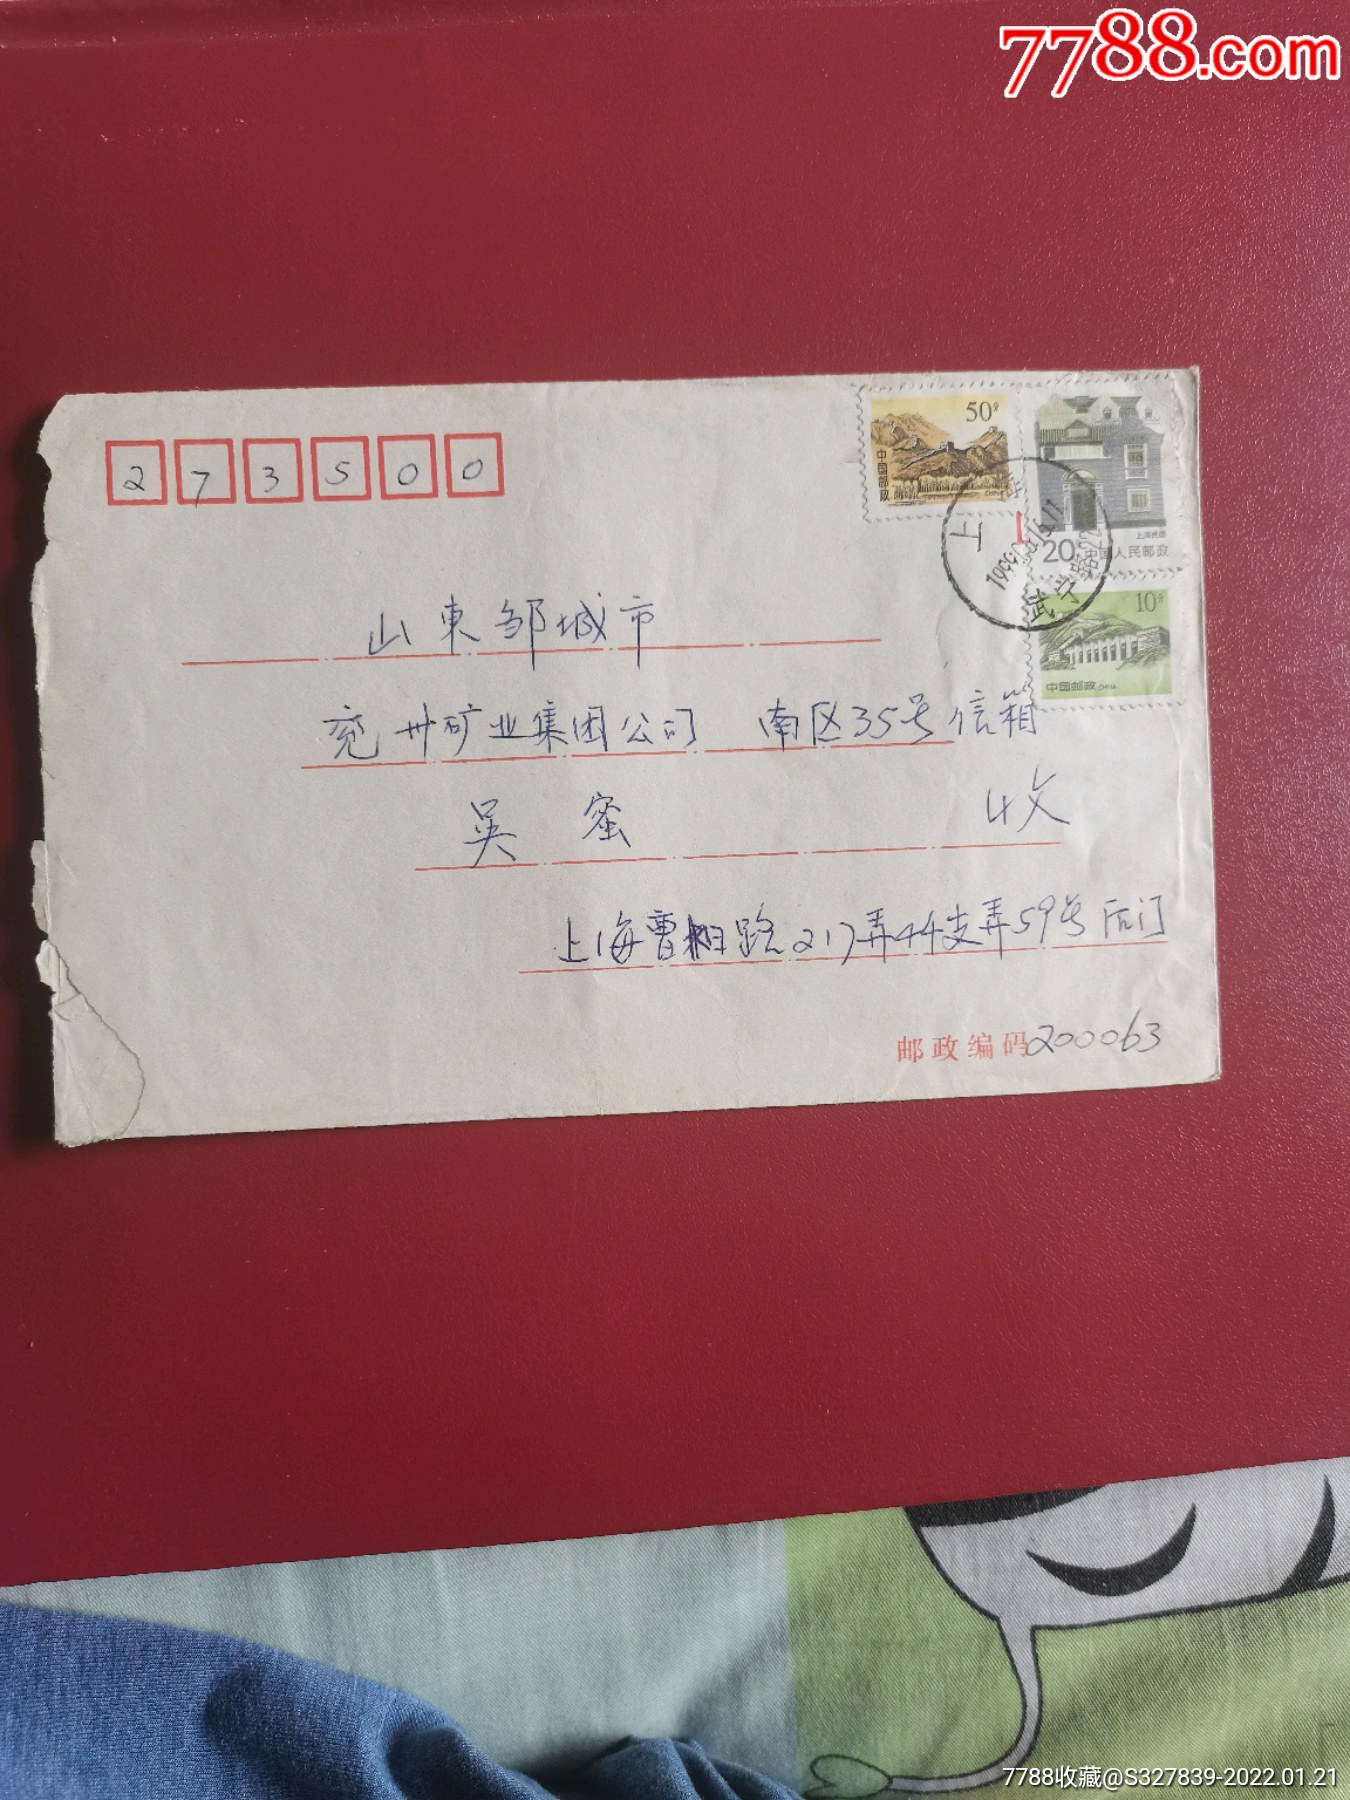 7788.com
50分
中国邮政
CHINA
上海民居
20
中国人民邮政
10分
中国邮政 CHINA
上
1999
武宁路
273500
山東邹城市
兖州矿业集团公司 南区35号信箱
吴 蜜 收
上海曹杨路217弄44支弄59号后门
邮政编码200063
7788收藏@S327839-2022.01.21